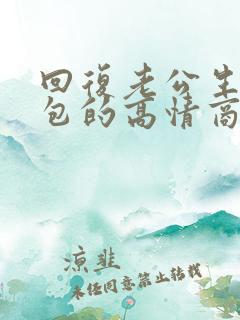 回復老公生
包的高情商
凉韭
未经同意禁止转载